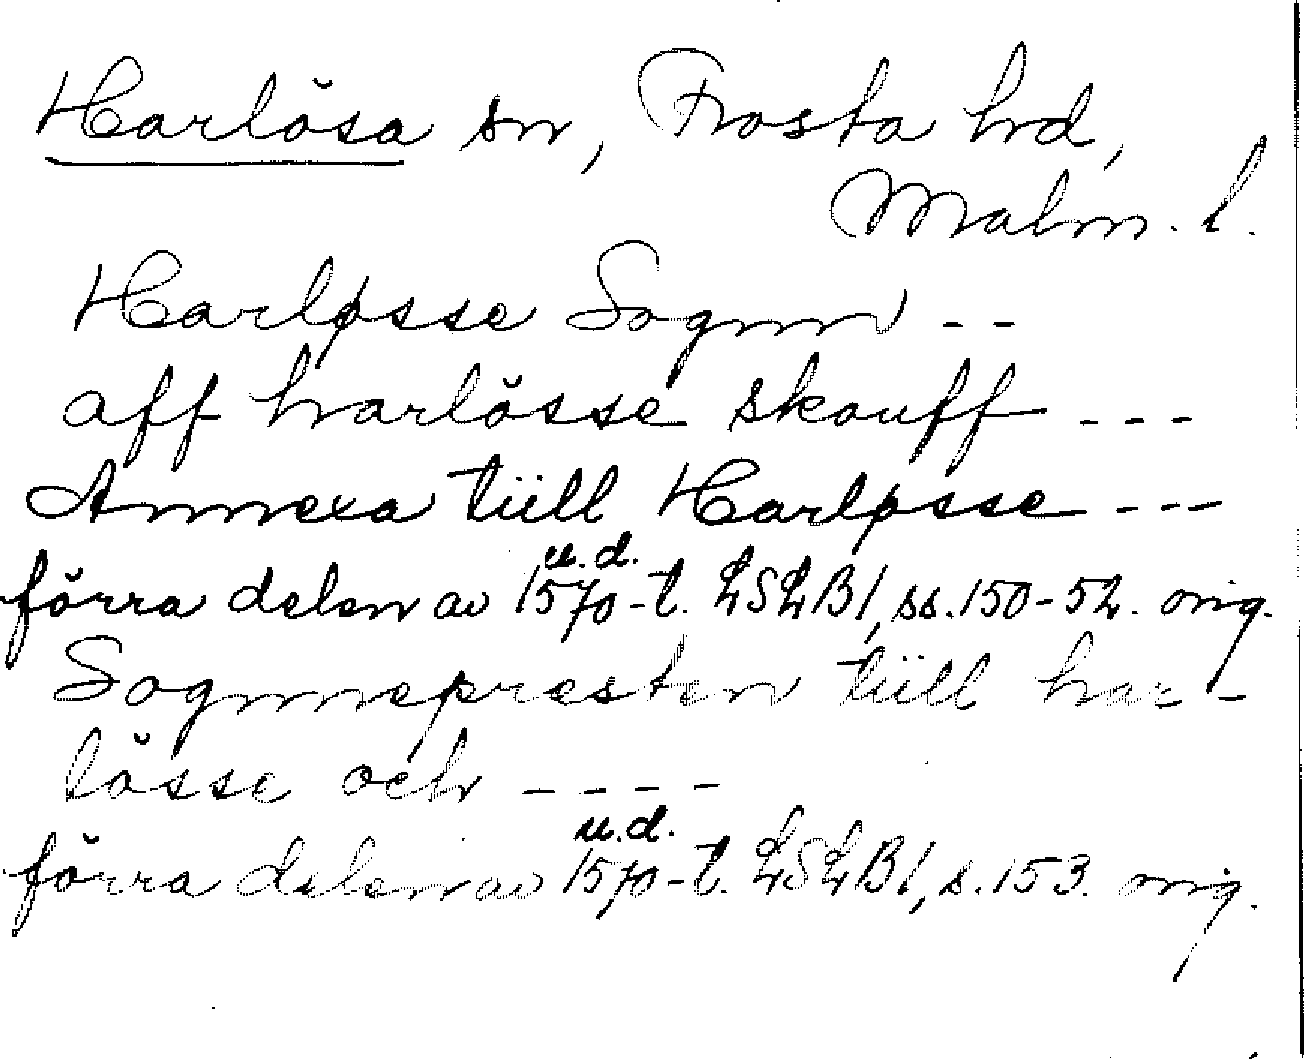 Harlösa sn, Frosta hd,
Malm. l.
Harløsse Sognn - -
aff harlösse skouff - - -
Annexa tiill Harløsse - - -
u.d.
förra delen av 1570-t. LSLB1, ss. 150-52. orig.
Sognnepresten tiill har-
lösse och - - - -
u.d.
förra delen av 1570-t. LSLB1, s. 153. orig.